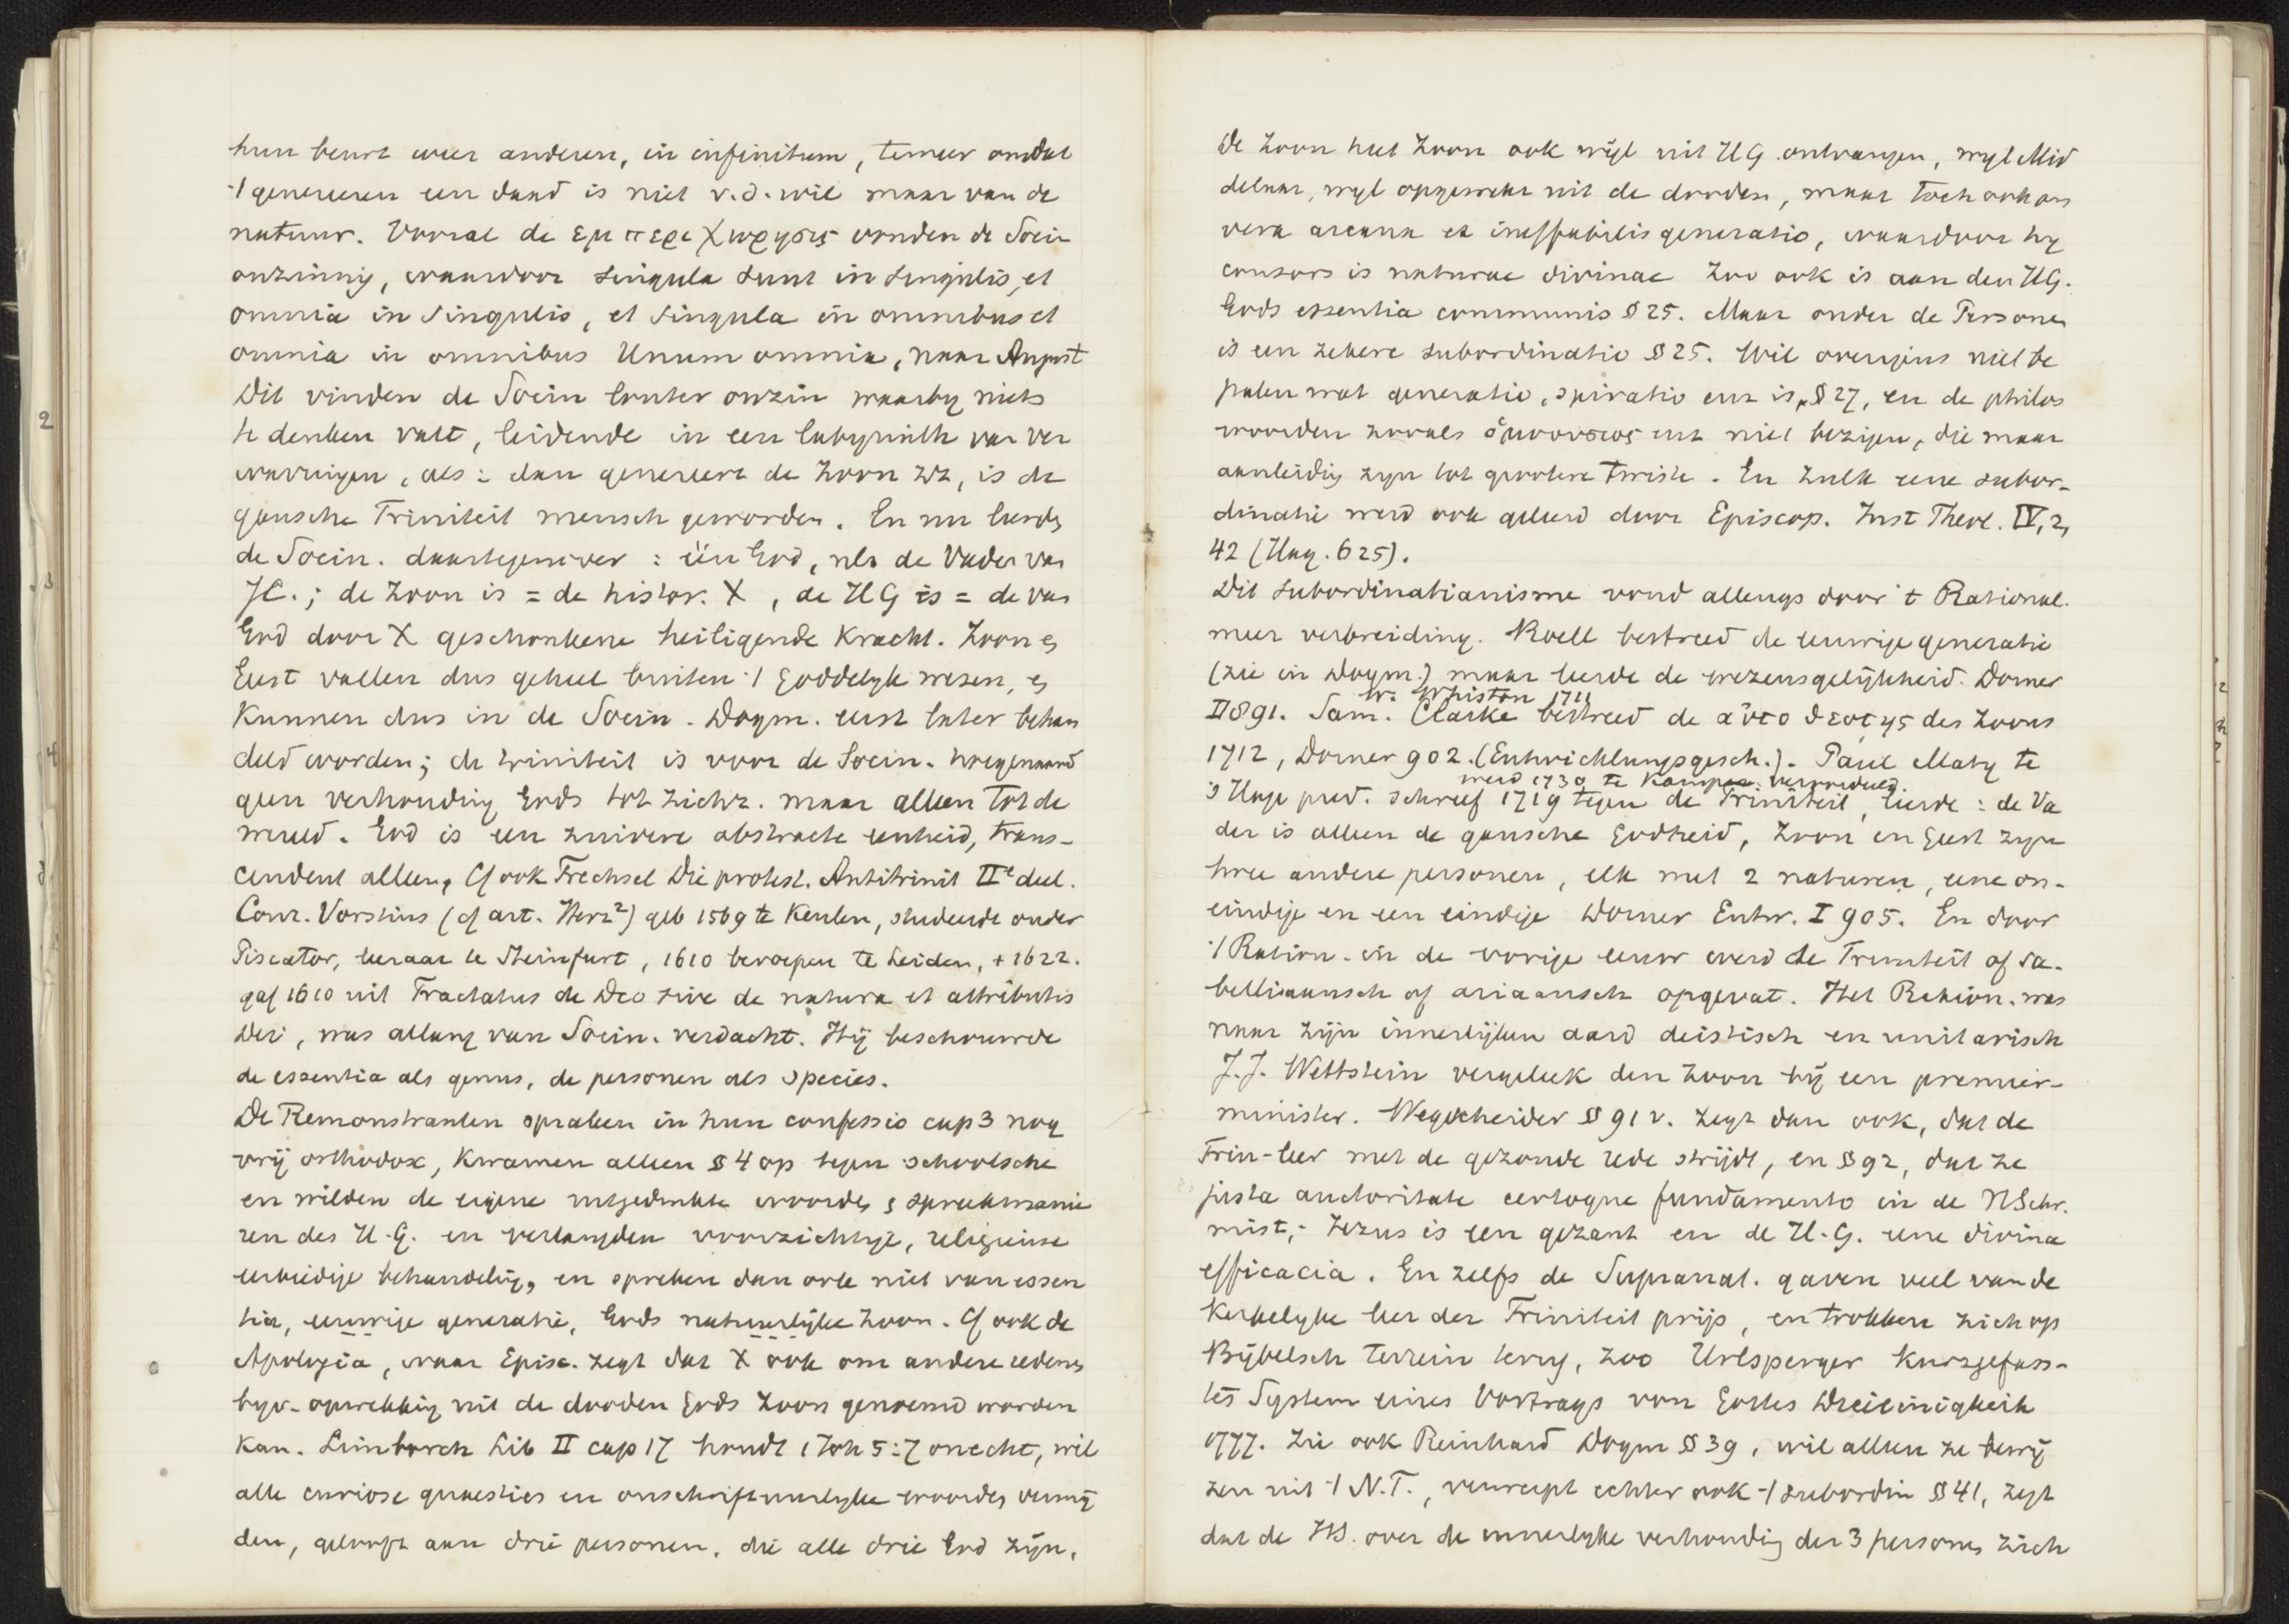 hun beurt weer anderen, in infinitum, temeer omdat
't genereeren een daad is niet v.d. wil maar van de
natuur. Vooral de εμπεριχωρησις vonden de Socin
onzinnig, waardoor singula sunt in singulis, et
omnia in singulis, et singula in omnibus et
omnia in omnibus Unum omnia, naar August
Dit vinden de Socin louter onzin waarbij niets
te denken valt, leidende in een labyrinth van ver
warringen, als: dan genereert de Zoon zich, is de
gansche Triniteit mensch geworden. En nu leerde
de Socin. daartegenover: één God, nls de Vader van
JC.; de Zoon is = de histor. X, de HG is = de van
God door X geschonkene heiligende kracht. Zoon en
Geest vallen dus geheel buiten 't Goddelyk wezen, en
kunnen dus in de Socin. Dogm. eerst later behan
deld worden; de triniteit is voor de Socin. hoegenaamd
geen verhouding Gods tot zichz. maar alleen tot de
wereld. God is een zuivere abstracte eenheid, trans-
cendent alleen, Cf ook Trechsel Die protest. Antitrinit IIe deel.
Conr. Vorstius (cf art. Herz²) geb 1569 te Keulen, studeerde onder
Piscator, leraar te Steinfurt, 1610 beroepen te Leiden, + 1622.
gaf 1610 uit Tractatus de Deo sive de natura et attributis
Dei, was allang van Socin. verdacht. Hij beschouwde
de essentia als genus, de personen als species.
De Remonstranten spraken in hun confessio cap 3 nog
vrij orthodox, kwamen alleen § 4 op tegen schoolsche
en wilden de eigene uitgedrukte woorden en spreekmanie
ren des H.G. en verlangden voorzichtige, religieuse
eerbiedige behandeling, en spreken dan ook niet van essen
tia, eeuwige generatie, Gods natuurlijke Zoon. Cf ook de
Apologia, waar Episc. zegt dat X ook om andere redenen
bijv. opwekking uit de dooden Gods Zoon genoemd worden
kan. Limborch Lib II cap 17 houdt 1 Joh 5:7 onecht, wil
alle curiose quaesties en onschriftuurlyke woorden vermij
den, gelooft aan drie personen, die alle drie God zijn,
De Zoon heet Zoon ook wijl uit HG ontvangen, wijl Mid
delaar, wijl opgewekt uit de dooden, maar toch ook om
vera arcana et ineffabilis generatio, waardoor hij
consors is naturae divinae Zoo ook is aan den HG.
Gods essentia communis § 25. Maar onder de Personen
is een zekere subordinatio § 25. Wil overigens niet be
palen wat generatio, spiratio enz is, § 27, en de philos
woorden zooals ὁμοουσιος enz niet bezigen, die maar
aanleiding zijn tot grootere twiste. En zulk eene subor-
dinatie werd ook geleerd door Episcop. Inst Theol. IV, 2,
42 (Hag. 625).
Dit subordinatianisme vond allengs door 't Rational.
meer verbreiding. Roell bestreed de eeuwige generatie
(zie in Dogm.) maar leerde de wezensgelijkheid. Dorner
W. Whiston 1711
II 891. Sam. Clarke bestreed de αὐτοθεοτης des Zoons
1712, Dorner 902. (Entwicklungsgesch.). Paul Maty te
werd 1730 te Kampen veroordeeld.
's Hage pred. schreef 1719 tegen de Triniteit, leerde: de Va
der is alleen de gansche Godheid, Zoon en Geest zijn
twee andere personen, elk met 2 naturen, eene on-
eindige en een eindige Dorner Entw. I 905. En door
't Ration. in de vorige eeuw werd de Triniteit of sa-
belliaansch of ariaansch opgevat. Het Ration. was
naar zijn innerlijken aard deistisch en unitarisch
J.J. Wettstein vergeleek den Zoon bij een premier-
minister. Wegscheider § 91 v. zegt dan ook, dat de
Trin-leer met de gezonde rede strijdt, en § 92, dat ze
justa auctoritate certoque fundamento in de HSchr.
mist; Jezus is een gezant en de H.G. eene divina
efficacia. En zelfs de Supranat. gaven veel van de
Kerkelyke leer der Triniteit prijs, en trokken zich op
Bijbelsch terrein terug, zoo Urlsperger Kurzgefass-
tes System eines Vortrags von Gottes Dreieinigkeit
1777. Zie ook Reinhard Dogm § 39, wil alleen ze bewij
zen uit 't N.T., verwerpt echter ook 't subordin § 41, zegt
dat de HS. over de innerlyke verhouding der 3 personen zich